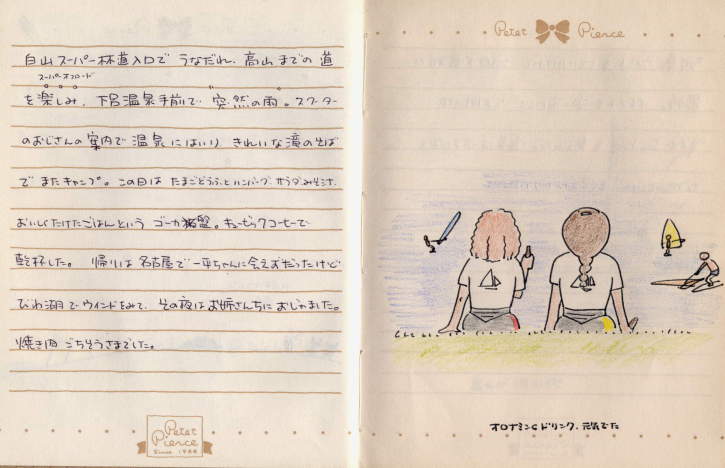 白山スーパー林道入口で うなだれ、高山までの道
スーパーオフロード
を楽しみ、下呂温泉手前で 突然の雨。スクーター
のおじさんの案内で温泉にはいり きれいな滝のそば
でまたキャンプ。この日は たまごどうふとハンバーグ、サラダ、みそしる、
おいしくたけたごはんという ゴーカ
キュービックコーヒーで
乾杯した。 帰りは名古屋で一平ちゃんに会えずだったけど
びわ湖でウインドをみて、その夜はお姉さんちにおじゃました。
焼き肉ごちそうさまでした。
Petet Pierce
Since 1988
Petet Pierce
オロナミンCドリンク、元気でた